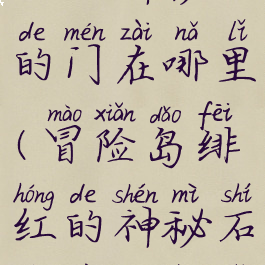 de mén zài nǎ lǐ
的门在哪里
mào xiǎn dǎo fēi
(冒险岛绯
hóng de shén mì shí
红的神秘石